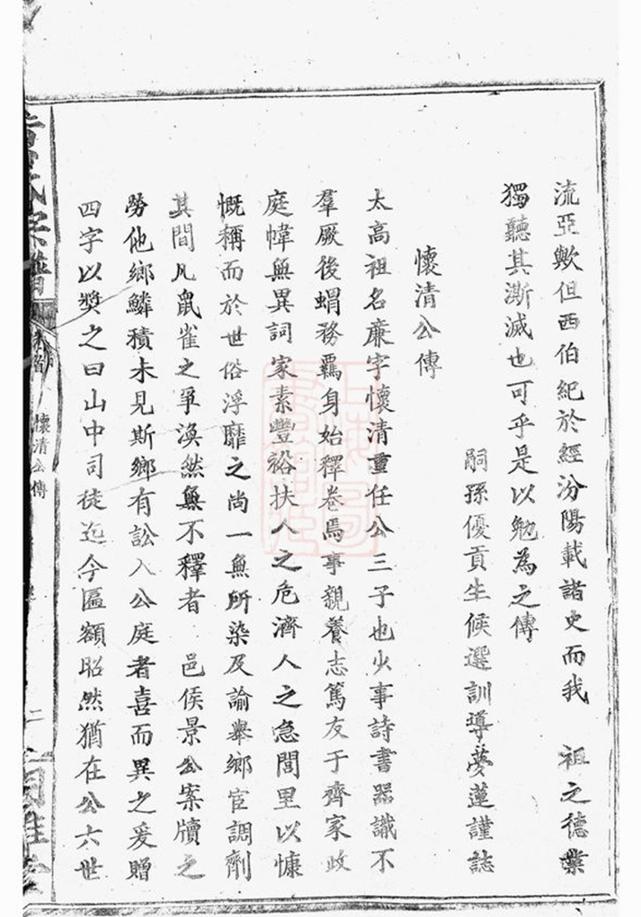 流亞歟但西伯紀於經汾陽載諸史而我 祖之德業
獨聽其澌滅也可乎是以勉為之傳
嗣孫優貢生候選訓導夢蓮謹誌
懷清公傳
太高祖名廉字懷清重任公三子也少事詩書器識不
羣厥後蝟務羈身始釋卷焉事親養志篤友于齊家政
庭幃無異詞家素豐裕扶人之危濟人之急閭里以慷
慨稱而於世俗浮靡之尚一無所染及諭舉鄉官調劑
其間凡鼠雀之爭渙然無不釋者 邑侯景公案牘之
勞他鄉鱗積未見斯鄉有訟入公庭者喜而異之爰贈
四字以獎之曰山中司徒迄今匾額昭然猶在公六世
氏宗譜
懷清公傳
二